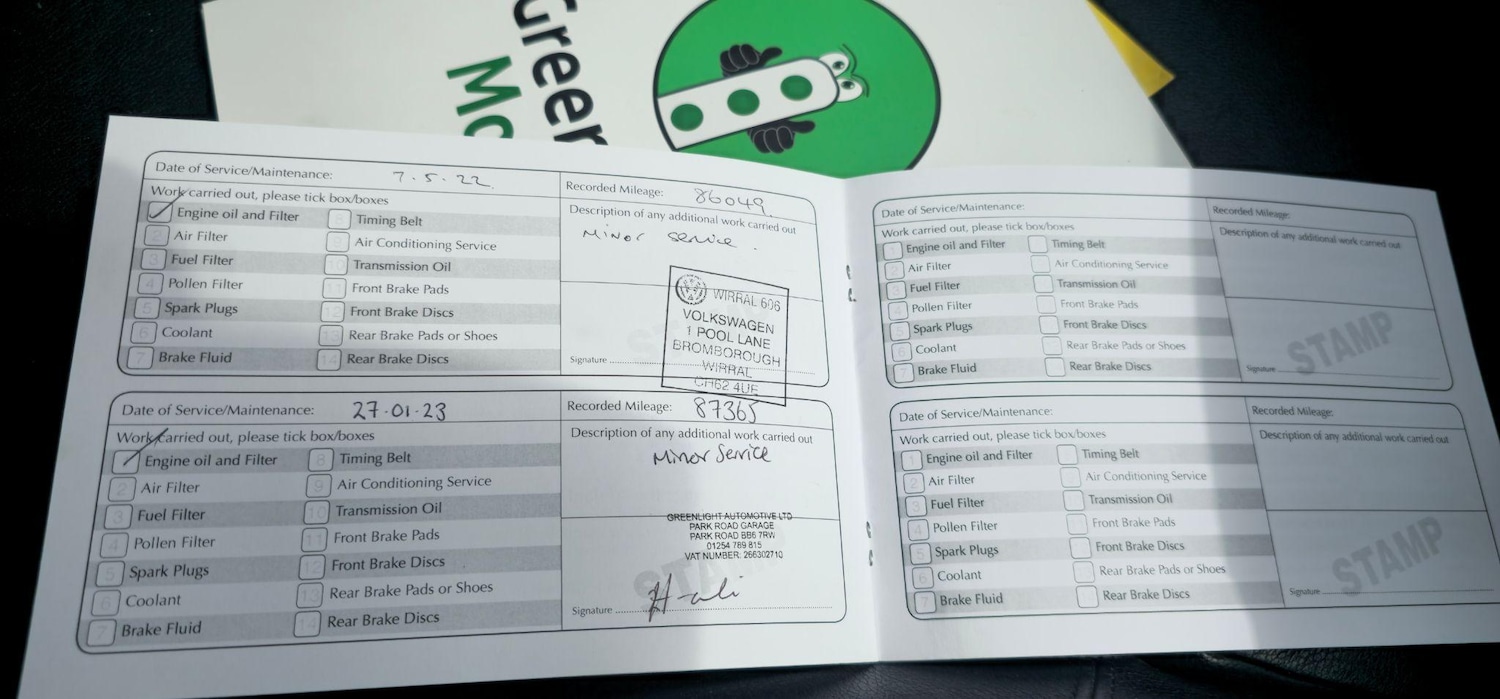 Green
Mo
Date of Service/Maintenance: 7.5.22.
Recorded Mileage: 86049.
Work carried out, please tick box/boxes
Engine oil and Filter
2 Air Filter
3 Fuel Filter
4 Pollen Filter
5 Spark Plugs
6 Coolant
7 Brake Fluid
8 Timing Belt
9 Air Conditioning Service
10 Transmission Oil
11 Front Brake Pads
12 Front Brake Discs
13 Rear Brake Pads or Shoes
14 Rear Brake Discs
Description of any additional work carried out
Minor service.
STAMP
WIRRAL 606
VOLKSWAGEN
1 POOL LANE
BROMBOROUGH
WIRRAL
CH62 4UE
Signature
Date of Service/Maintenance: 27-01-23
Recorded Mileage: 87365
Work carried out, please tick box/boxes
Engine oil and Filter
2 Air Filter
3 Fuel Filter
4 Pollen Filter
5 Spark Plugs
6 Coolant
7 Brake Fluid
8 Timing Belt
9 Air Conditioning Service
10 Transmission Oil
11 Front Brake Pads
12 Front Brake Discs
13 Rear Brake Pads or Shoes
14 Rear Brake Discs
Description of any additional work carried out
Minor Service
GREENLIGHT AUTOMOTIVE LTD
PARK ROAD GARAGE
PARK ROAD BB6 7RW
01254 789 815
VAT NUMBER: 266302710
STAMP
Signature H-ali
Date of Service/Maintenance:
Recorded Mileage:
Work carried out, please tick box/boxes
1 Engine oil and Filter
2 Air Filter
3 Fuel Filter
4 Pollen Filter
5 Spark Plugs
6 Coolant
7 Brake Fluid
Timing Belt
Air Conditioning Service
Transmission Oil
Front Brake Pads
Front Brake Discs
Rear Brake Pads or Shoes
Rear Brake Discs
Description of any additional work carried out
STAMP
Signature
Date of Service/Maintenance:
Recorded Mileage:
Work carried out, please tick box/boxes
1 Engine oil and Filter
2 Air Filter
3 Fuel Filter
4 Pollen Filter
5 Spark Plugs
6 Coolant
7 Brake Fluid
Timing Belt
Air Conditioning Service
Transmission Oil
Front Brake Pads
Front Brake Discs
Rear Brake Pads or Shoes
Rear Brake Discs
Description of any additional work carried out
STAMP
Signature